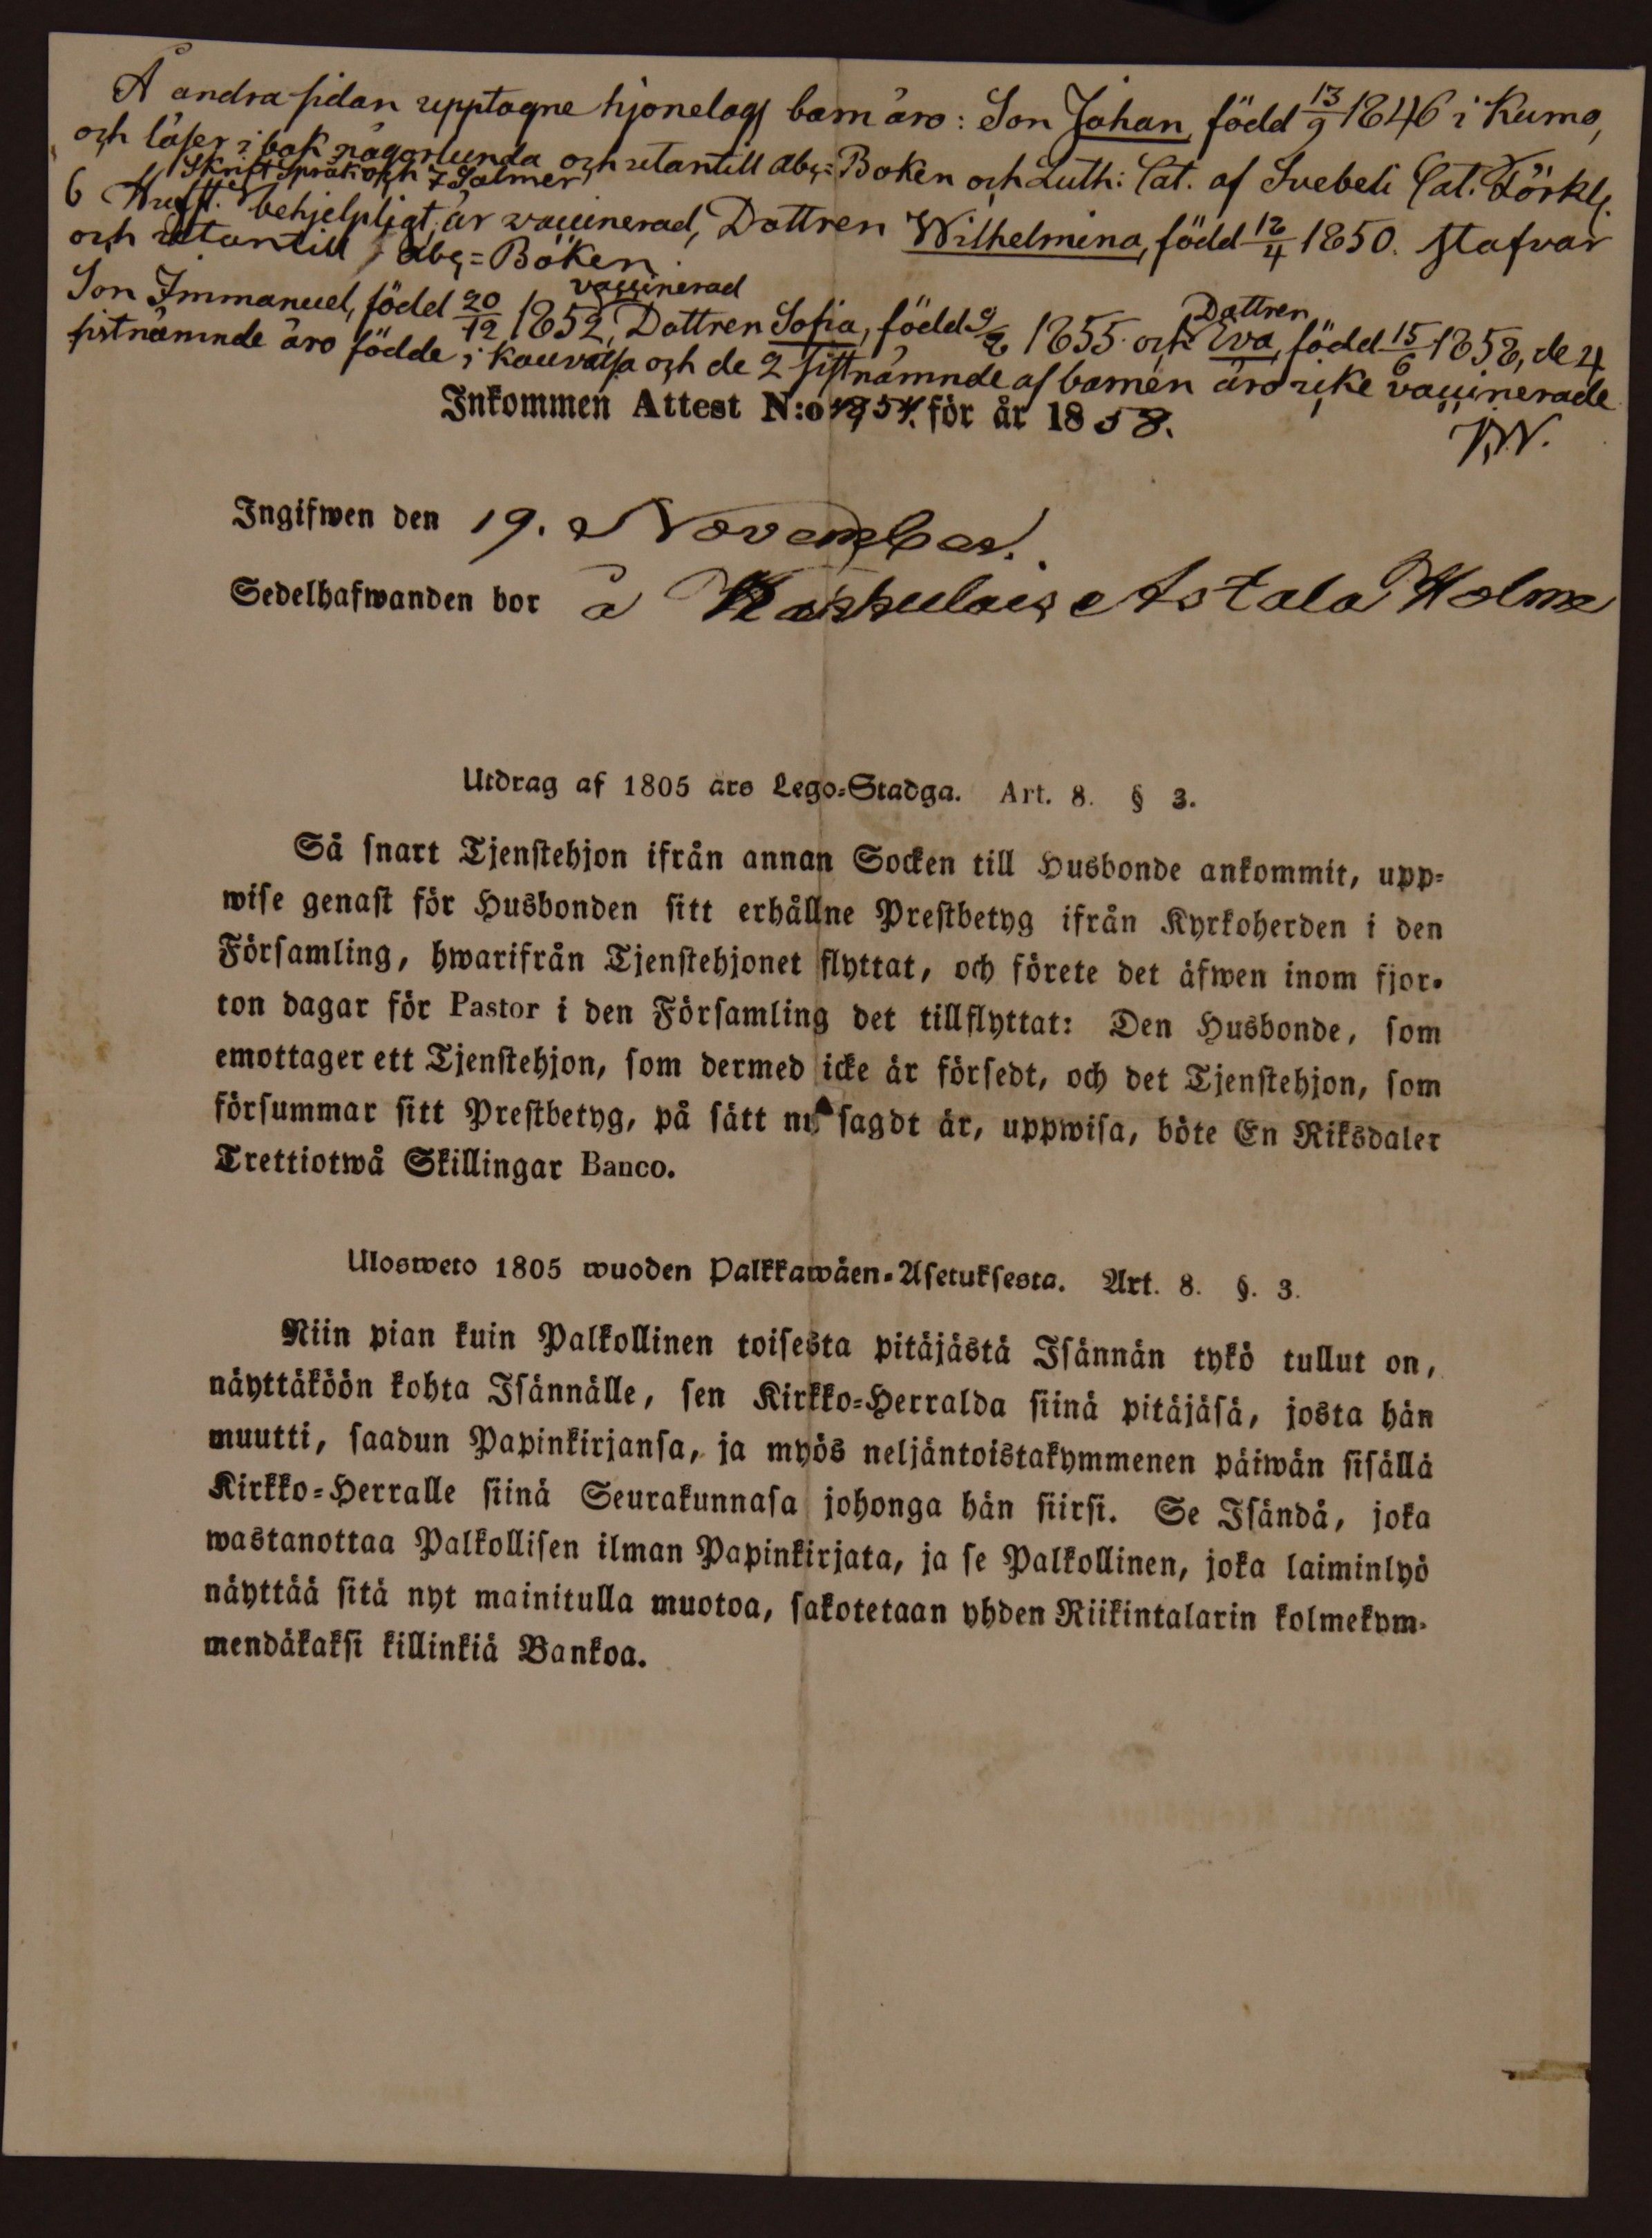 Å andra sidan upptagne hjonelags barn äro: Son Johan, född 13/9 1846 i Kumo,
och läser i bok någorlunda och utantill abc=Boken och Luth: Cat. af Svebeli Cat. Förkl.
Skriftspråk och 7 Psalmer
6 behjelpligt, är vaccinerad, Dottren Wilhelmina, född 12/4 1850. stafvar
och utantill abc=Boken.
vaccinerad
Dottren
Son Immanuel, född 20/12 1852, Dottren Sofia, född 1855 och Eva, född 15/6 1858, de 4
sistnämnde äro födde i Kauvatsa och de 2 sistnämnde af barnen äro icke vaccinerade
Inkommen Attest N:o 54. för år 1858.
Ingifwen den 19. November.
Sedelhafwanden bor å Astala Holma
Utdrag af 1805 års Lego=Stadga. Art. 8. § 3.
Så snart Tjenstehjon ifrån annan Socken till Husbonde ankommit, upp=
wise genast för Husbonden sitt erhållne Prestbetyg ifrån Kyrkoherden i den
Församling, hwarifrån Tjenstehjonet flyttat, och förete det äfwen inom fjor=
ton dagar för Pastor i den Församling det tillflyttat: Den Husbonde, som
emottager ett Tjenstehjon, som dermed icke är försedt, och det Tjenstehjon, som
försummar sitt Prestbetyg, på sätt nu sagdt är, uppwisa, böte En Riksdaler
Trettiotwå Skillingar Banco.
Ulosweto 1805 wuoden Palkkawäen=Asetuksesta. Art. 8. §. 3.
Niin pian kuin Palkollinen toisesta pitäjästä Isännän tykö tullut on,
näyttäköön kohta Isännälle, sen Kirkko=Herralda siinä pitäjäsä, josta hän
muutti, saadun Papinkirjansa, ja myös neljäntoistakymmenen päiwän sisällä
Kirkko=Herralle siinä Seurakunnasa johonga hän siirsi. Se Isändä, joka
wastanottaa Palkollisen ilman Papinkirjata, ja se Palkollinen, joka laiminlyö
näyttää sitä nyt mainitulla muotoa, sakotetaan yhden Riikintalarin kolmekym=
mendäkaksi killinkiä Bankoa.